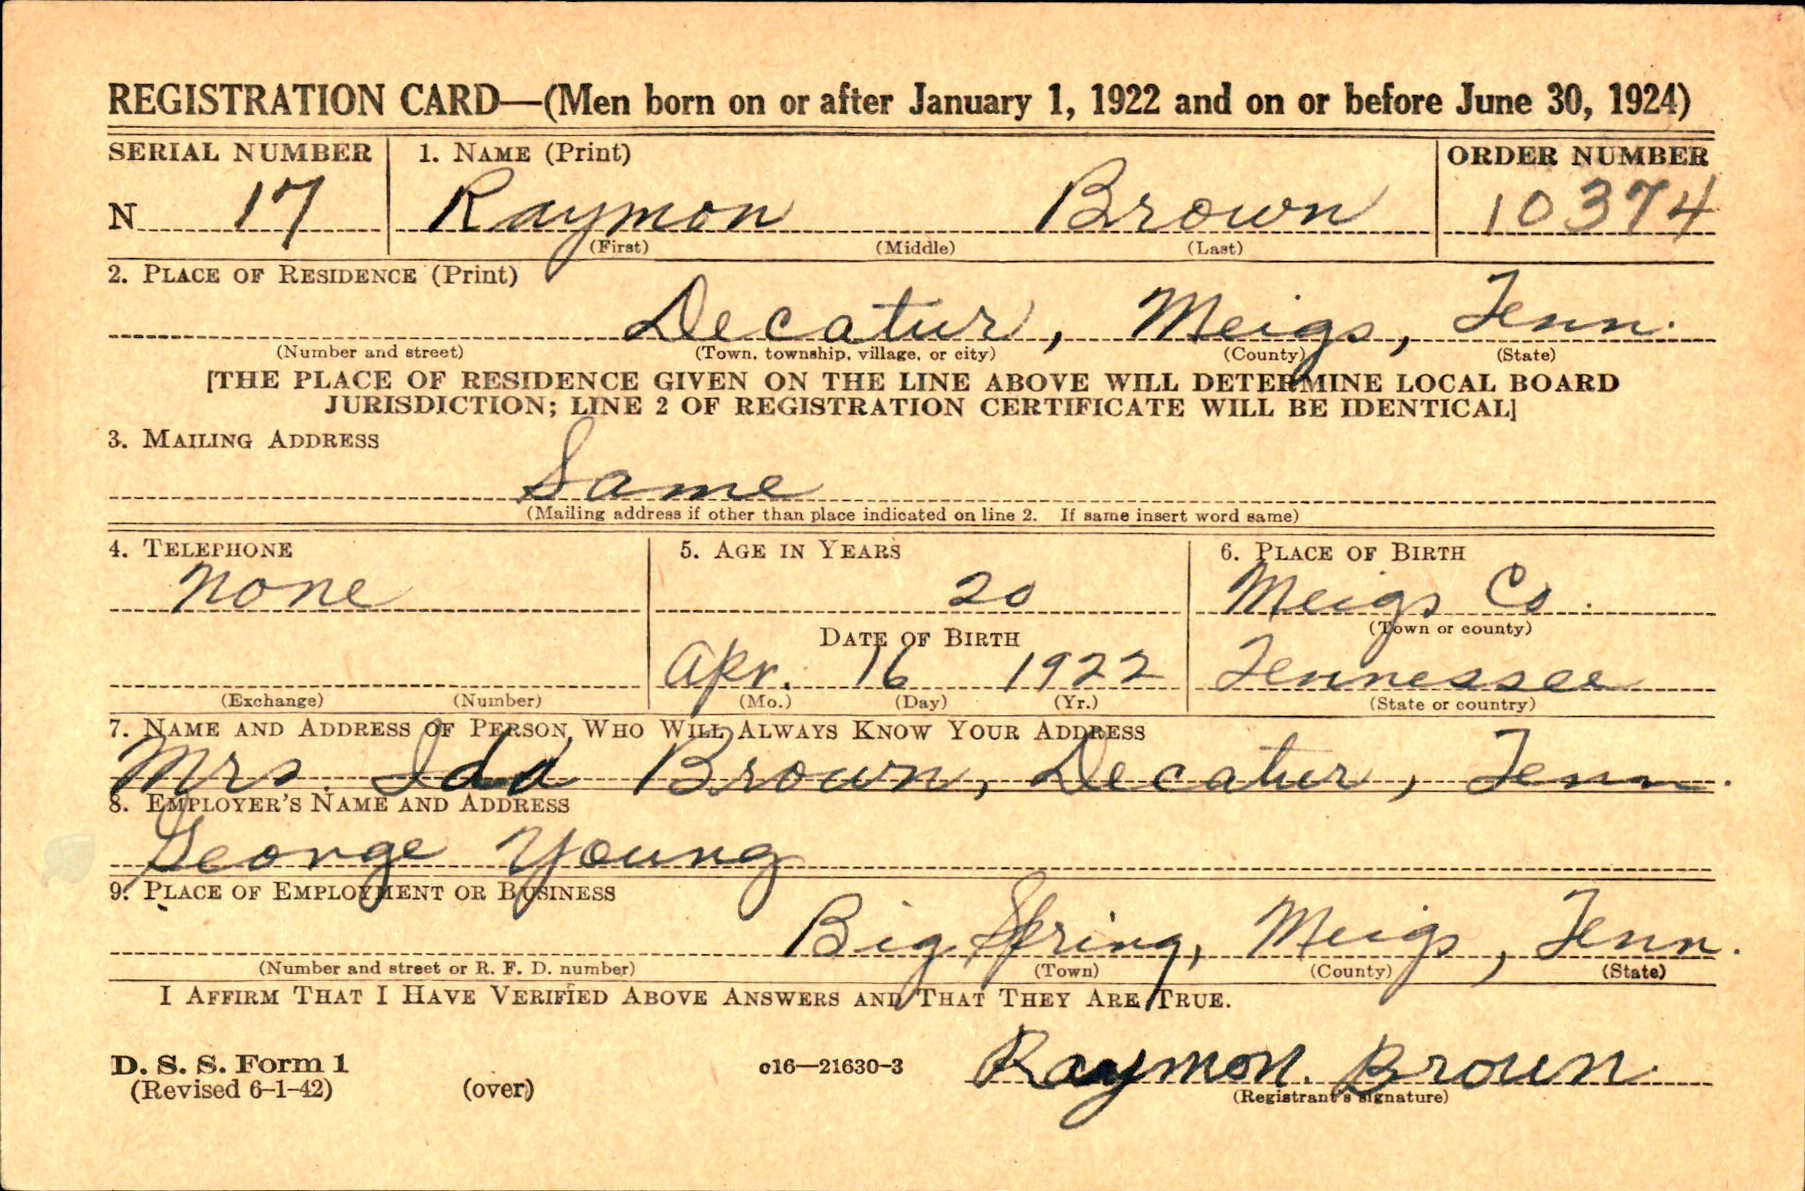 REGISTRATION CARD—(Men born on or after January 1, 1922 and on or before June 30, 1924)
SERIAL NUMBER 1. NAME (Print) ORDER NUMBER
N 17 Raymon Brown 10374
(First) (Middle) (Last)
2. PLACE OF RESIDENCE (Print)
Decatur, Meigs, Tenn.
(Number and street) (Town, township, village, or city) (County) (State)
[THE PLACE OF RESIDENCE GIVEN ON THE LINE ABOVE WILL DETERMINE LOCAL BOARD
JURISDICTION; LINE 2 OF REGISTRATION CERTIFICATE WILL BE IDENTICAL]
3. MAILING ADDRESS
Same
(Mailing address if other than place indicated on line 2. If same insert word same)
4. TELEPHONE 5. AGE IN YEARS 6. PLACE OF BIRTH
None 20 Meigs Co.
DATE OF BIRTH (Town or county)
Apr. 16 1922 Tennessee
(Exchange) (Number) (Mo.) (Day) (Yr.) (State or country)
7. NAME AND ADDRESS OF PERSON WHO WILL ALWAYS KNOW YOUR ADDRESS
Mrs. Ida Brown, Decatur, Tenn.
8. EMPLOYER'S NAME AND ADDRESS
George Young
9. PLACE OF EMPLOYMENT OR BUSINESS
Big Spring, Meigs, Tenn.
(Number and street or R. F. D. number) (Town) (County) (State)
I AFFIRM THAT I HAVE VERIFIED ABOVE ANSWERS AND THAT THEY ARE TRUE.
D. S. S. Form 1
(Revised 6-1-42) (over) c16—21630-3 Raymon. Brown.
(Registrant's signature)